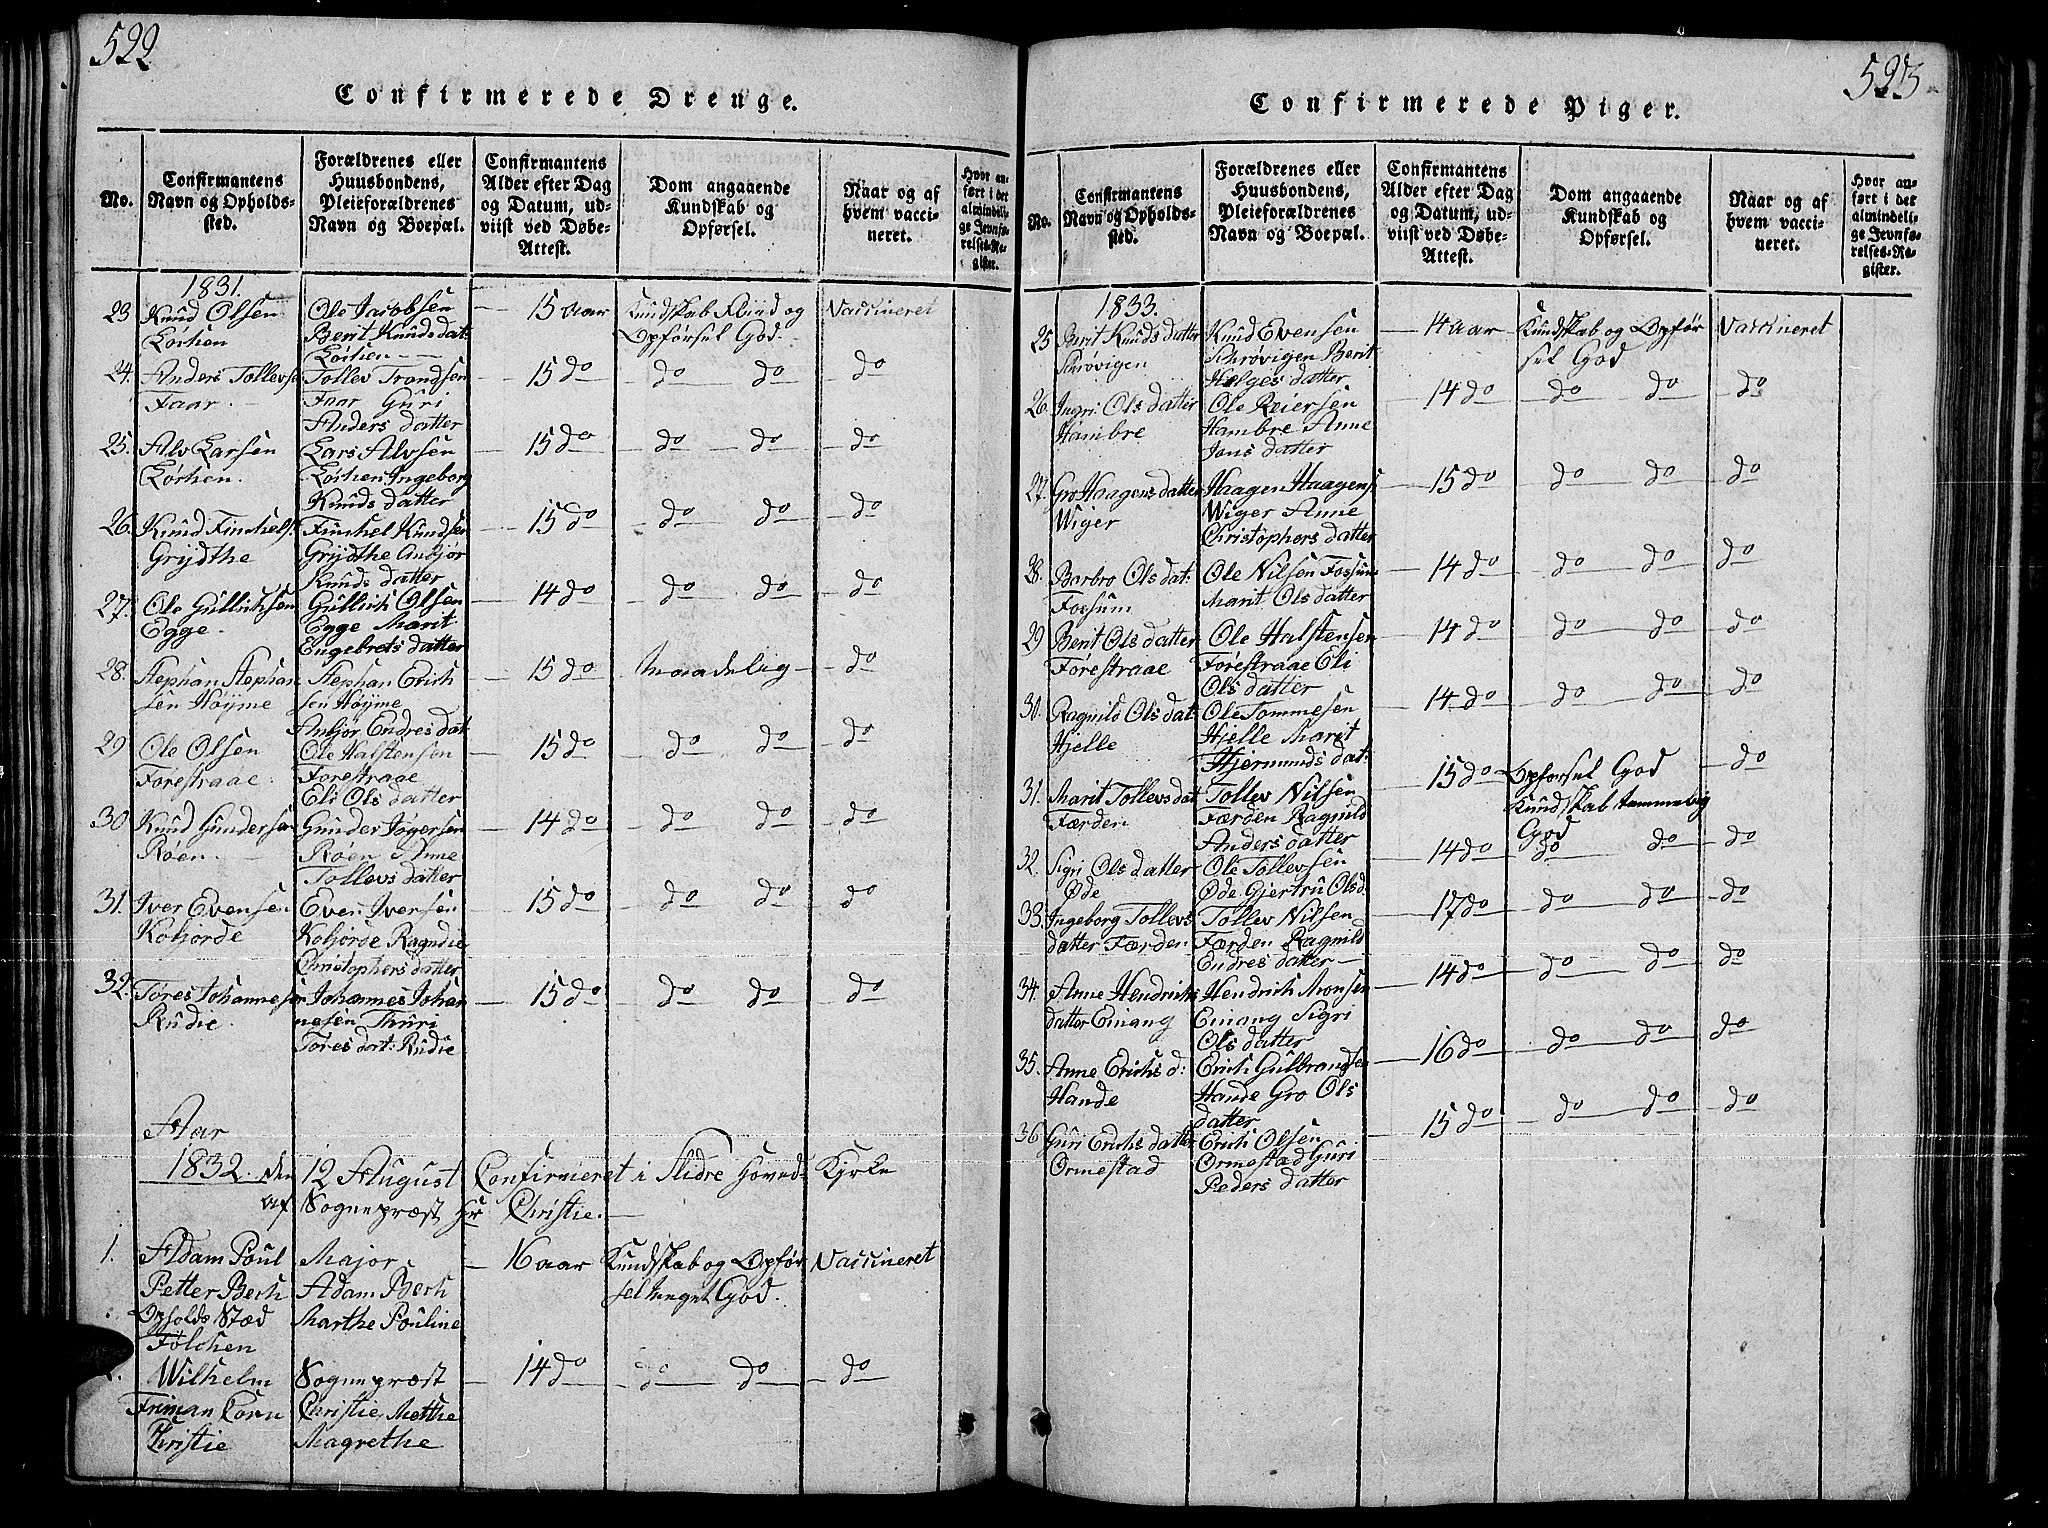 522
Confirmerede Drenge.
No.
Confirmantens Navn og Opholdssted.
Forældrenes eller Huusbondens, Pleieforældrenes Navn og Boepæl.
Confirmantens Alder efter Dag og Datum, udviist ved Døbe-Attest.
Dom angaaende Kundskab og Opførsel.
Naar og af hvem vaccineret.
Hvor anført i det almindelige Jevnførelses-Register.
1831.
23 Knud Olsen Ole Jacobsen — 15 Aar Kundskab Fliid og Vaccineret
Lorhen Berit Knuds dat: Opførsel God.
Lorhen
24. Anders Tollevse Tollev Trondsen — 15 do do do — do
Faar. Faar Guri
Anders datter
25. Alv Larsen Lars Alvsen — 15 do do do — do
Lorhen. Lorhen Ingeborg
Knuds datter
26. Knud Finchels. Finchel Knudsen — 15 do do do — do
Grydthe Grydthe Anbjør
Knuds datter
27. Ole Gullichsen Gullich Olsen — 14 do do do — do
Egge. Egge Marit
Engebrets datter
28. Stephan Stephan Stephan Erich — 15 do Maadelig — do
sen Høyme sen Høyme
Anbjør Endres dat
29 Ole Olsen Ole Halstensen — 15 do do do — do
Forestraae. Forestraae
Eli Ols datter
30 Knud Gundersen Gunder Jøgersen — 14 do do do — do
Røen. Røen Anne
Tollevs datter
31. Iver Evensen Even Iversen — 15 do do do do
Kohjorde Kohjorde Ragndie
Christophers datter
32. Tøres Johannesen Johannes Johan — 15 do do do — do
Rudie. nesen Thuri
Tøres dat: Rudie
Aar
1832. den 12 August Confirmeret i Slidre Hoved- Kirke
af Sognepræst Hr Christie.
1. Adam Poul Major — 16 aar Kundskab og Opfør Vaccineret
Petter Berh Adam Berh sel meget God.
Opholds Stæd Marthe Pouline
Følchen
Wilhelm Sognepræst — 14 do do do — do
Friman Corn Christie, Methe
Christie Magrethe
523
Confirmerede Piger.
No.
Confirmantens Navn og Opholdssted.
Forældrenes eller Huusbondens, Pleieforældrenes Navn og Boepæl.
Confirmantens Alder efter Dag og Datum, udviist ved Døbe-Attest.
Dom angaaende Kundskab og Opførsel.
Naar og af hvem vaccineret.
Hvor anført i det almindelige Jevnførelses-Register.
1833.
25 Berit Knuds datter Knud Evensen — 14 aar Kundskab og Opfør Vaccineret
Schrøvigen Schrøvigen Berit sel God
Helges datter
26. Ingri Ols datter Ole Reiersen — 14 do do do — do
Hambre Hambre Anne
Jons datter
27. Gro Haagens datter Haagen Haagens. — 15 do do do — do
Wiger Wiger Anne
Christophers datter
28. Barbro Ols dat: Ole Nilsen Fossum — 14 do do do — do
Fossum Marit Ols datter
29 Berit Ols datter Ole Halstensen — 14 do do do — do
Førestraae Førestraae Eli
Ols datter
30. Ragnild Ols dat: Ole Tommesen — 14 do do do — do
Hjelle Hjelle Marit
Hjermunds dat:
31. Marit Tollevs dat Tollev Nilsen — 15 do Opførsel God — do
Færden Færden Ragnild Kundskab tammelig
Anders datter God
32. Sigri Ols datter Ole Tollevsen — 14 do do do — do
Øde Øde Gjertru Ols d.
33. Ingeborg Tollevs Tollev Nilsen — 17 do do do — do
datter Færden Færden Ragnild
Endres datter —
34. Anne Hendrichs Hendrich Monsen — 14 do do do — do
datter Einang Einang Sigri
Ols datter
35. Anne Erichs d: Erich Gulbrandsen — 16 do do do do
Hande Hande Gro Ols
datter
36 Guri Erichs datter Erich Olsen — 15 do do do — do
Ormestad Ormestad Guri
Peders datter